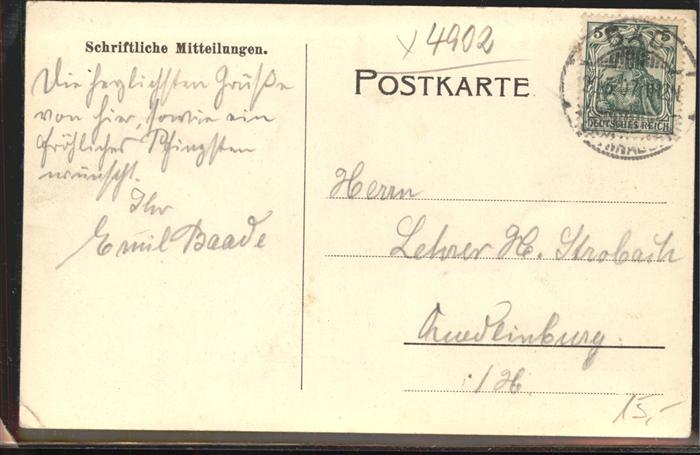 x 4902
Schriftliche Mitteilungen.
POSTKARTE
5 5
DEUTSCHES REICH
Die herzlichsten Grüße
von hier, sowie ein
fröhliches Pfingsten
wünscht.
Ihr
Emil Baade
Herrn
Lehrer H. Strobach
Quedlinburg.
i/H.
15,-